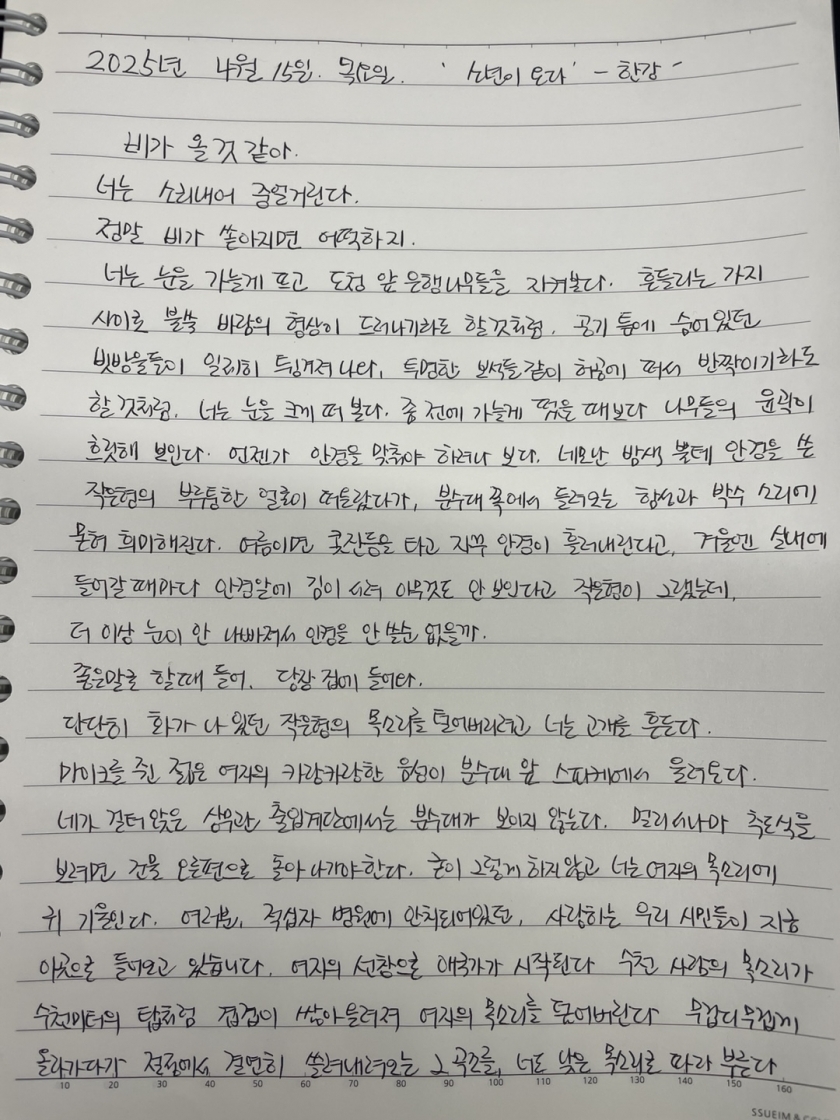 2025년 4월 15일. 목요일. '소년이 온다' - 한강 -
비가 올 것 같아.
너는 소리내어 중얼거린다.
정말 비가 쏟아지면 어떡하지.
너는 눈을 가늘게 뜨고 도청 앞 은행나무들을 지켜본다. 흔들리는 가지
사이로 불쑥 바람의 형상이 드러나기라도 할것처럼. 공기 틈에 숨어있던
빗방울들이 일제히 튕겨져 나와, 투명한 보석들같이 허공에 떠서 반짝이기라도
할것처럼. 너는 눈을 크게 떠 본다. 좀 전에 가늘게 떴을 때보다 나무들의 윤곽이
흐릿해 보인다. 언젠가 안경을 맞춰야 하려나 보다. 네모난 밤색 뿔테 안경을 쓴
작은형의 부루퉁한 얼굴이 떠올랐다가, 분수대 쪽에서 들려오는 함성과 박수 소리에
묻혀 희미해진다. 여름이면 콧잔등을 타고 자꾸 안경이 흘러내린다고, 겨울엔 실내에
들어갈 때마다 안경알에 김이 서려 아무것도 안 보인다고 작은형이 그랬는데.
더 이상 눈이 안 나빠져서 안경을 안 쓸순 없을까.
좋은말로 할때 들어. 당장 집에 들어와.
단단히 화가 나 있던 작은형의 목소리를 털어버리려고 너는 고개를 흔든다.
마이크를 쥔 젊은 여자의 카랑카랑한 음성이 분수대 앞 스피커에서 울려온다.
네가 걸터앉은 상무관 출입계단에서는 분수대가 보이지 않는다. 멀리서나마 추도식을
보려면 건물 오른편으로 돌아 나가야한다. 굳이 그렇게 하지 않고 너는 여자의 목소리에
귀 기울인다. 여러분, 적십자 병원에 안치되어있던, 사랑하는 우리 시민들이 지금
이곳으로 들어오고 있습니다. 여자의 선창으로 애국가가 시작된다 수천 사람의 목소리가
수천미터의 탑처럼 겹겹이 쌓아올려져 여자의 목소리를 덮어버린다 무겁디무겁게
올라가다가 절정에서 결연히 쓸려내려오는 그 곡조를, 너도 낮은 목소리로 따라 부른다
10 20 30 40 50 60 70 80 90 100 110 120 130 140 150 160